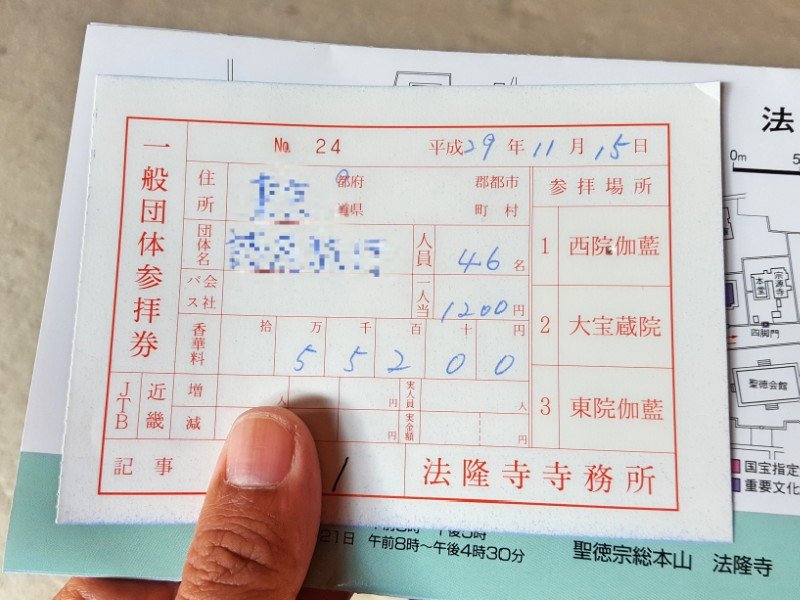 一般団体参拝券
№ 24
平成29年11月15日
住所
都府
県
郡都市
町村
団体名
人員 46名
バス会社
一人当 1200円
香華料
拾万千百十円
55200
JTB
近畿
増
人
円
減
円
実人員
人
実金額
円
記事
法隆寺寺務所
参拝場所
1 西院伽藍
2 大宝蔵院
3 東院伽藍
法
0m 5
本堂
宗源寺
四脚門
聖徳会館
国宝指定
重要文化
21日 午前8時〜午後4時30分
聖徳宗総本山 法隆寺